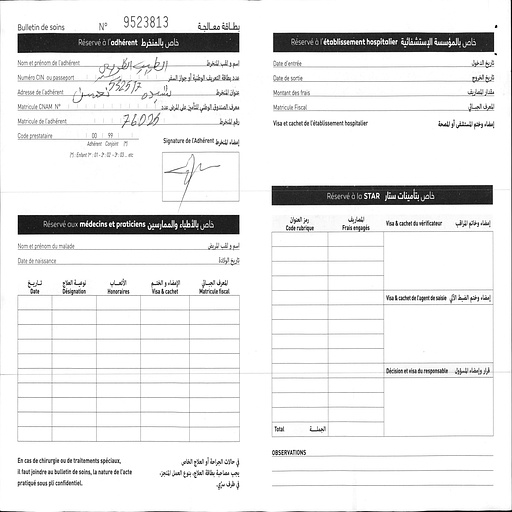 Bulletin de soins N° 9523813 بطاقة معالجة
Réservé à l'adhérent خاص بالمنخرط
Nom et prénom de l'adhérent إسم و لقب المنخرط
Numéro CIN ou passeport عدد بطاقة التعريف الوطنية أو جواز السفر
Adresse de l'adhérent عنوان المنخرط
Matricule CNAM N° معرف الصندوق الوطني للتأمين على المرض عدد
Matricule de l'adhérent رقم المنخرط
Code prestataire 00 99
Adhérent Conjoint (*)
(*) : Enfant 1er : 01 - 2e : 02 - 3e : 03 ... etc
Signature de l'Adhérent إمضاء المنخرط
Réservé aux médecins et praticiens خاص بالأطباء والممارسين
Nom et prénom du malade إسم و لقب المريض
Date de naissance تاريخ الولادة
تاريخ نوعية العلاج الأتعاب الإمضاء و الختم المعرف الجبائي
Date Désignation Honoraires Visa & cachet Matricule fiscal
En cas de chirurgie ou de traitements spéciaux,
il faut joindre au bulletin de soins, la nature de l'acte
pratiqué sous pli confidentiel.
في حالات الجراحة أو العلاج الخاص
يجب مصاحبة بطاقة العلاج، بنوع العمل المنجز،
في ظرف سري.
Réservé à l'établissement hospitalier خاص بالمؤسسة الإستشفائية
Date d'entrée تاريخ الدخول
Date de sortie تاريخ الخروج
Montant des frais مقدار المصاريف
Matricule Fiscal المعرف الجبائي
Visa et cachet de l'établissement hospitalier إمضاء وختم المستشفى أو المصحة
Réservé à la STAR خاص بتأمينات ستار
رمز العنوان المصاريف
Code rubrique Frais engagés
Visa & cachet du vérificateur إمضاء وخاتم المراقب
Visa & cachet de l'agent de saisie إمضاء وختم الضبط الآلي
Décision et visa du responsable قرار وإمضاء المسؤول
Total الجملة
OBSERVATIONS